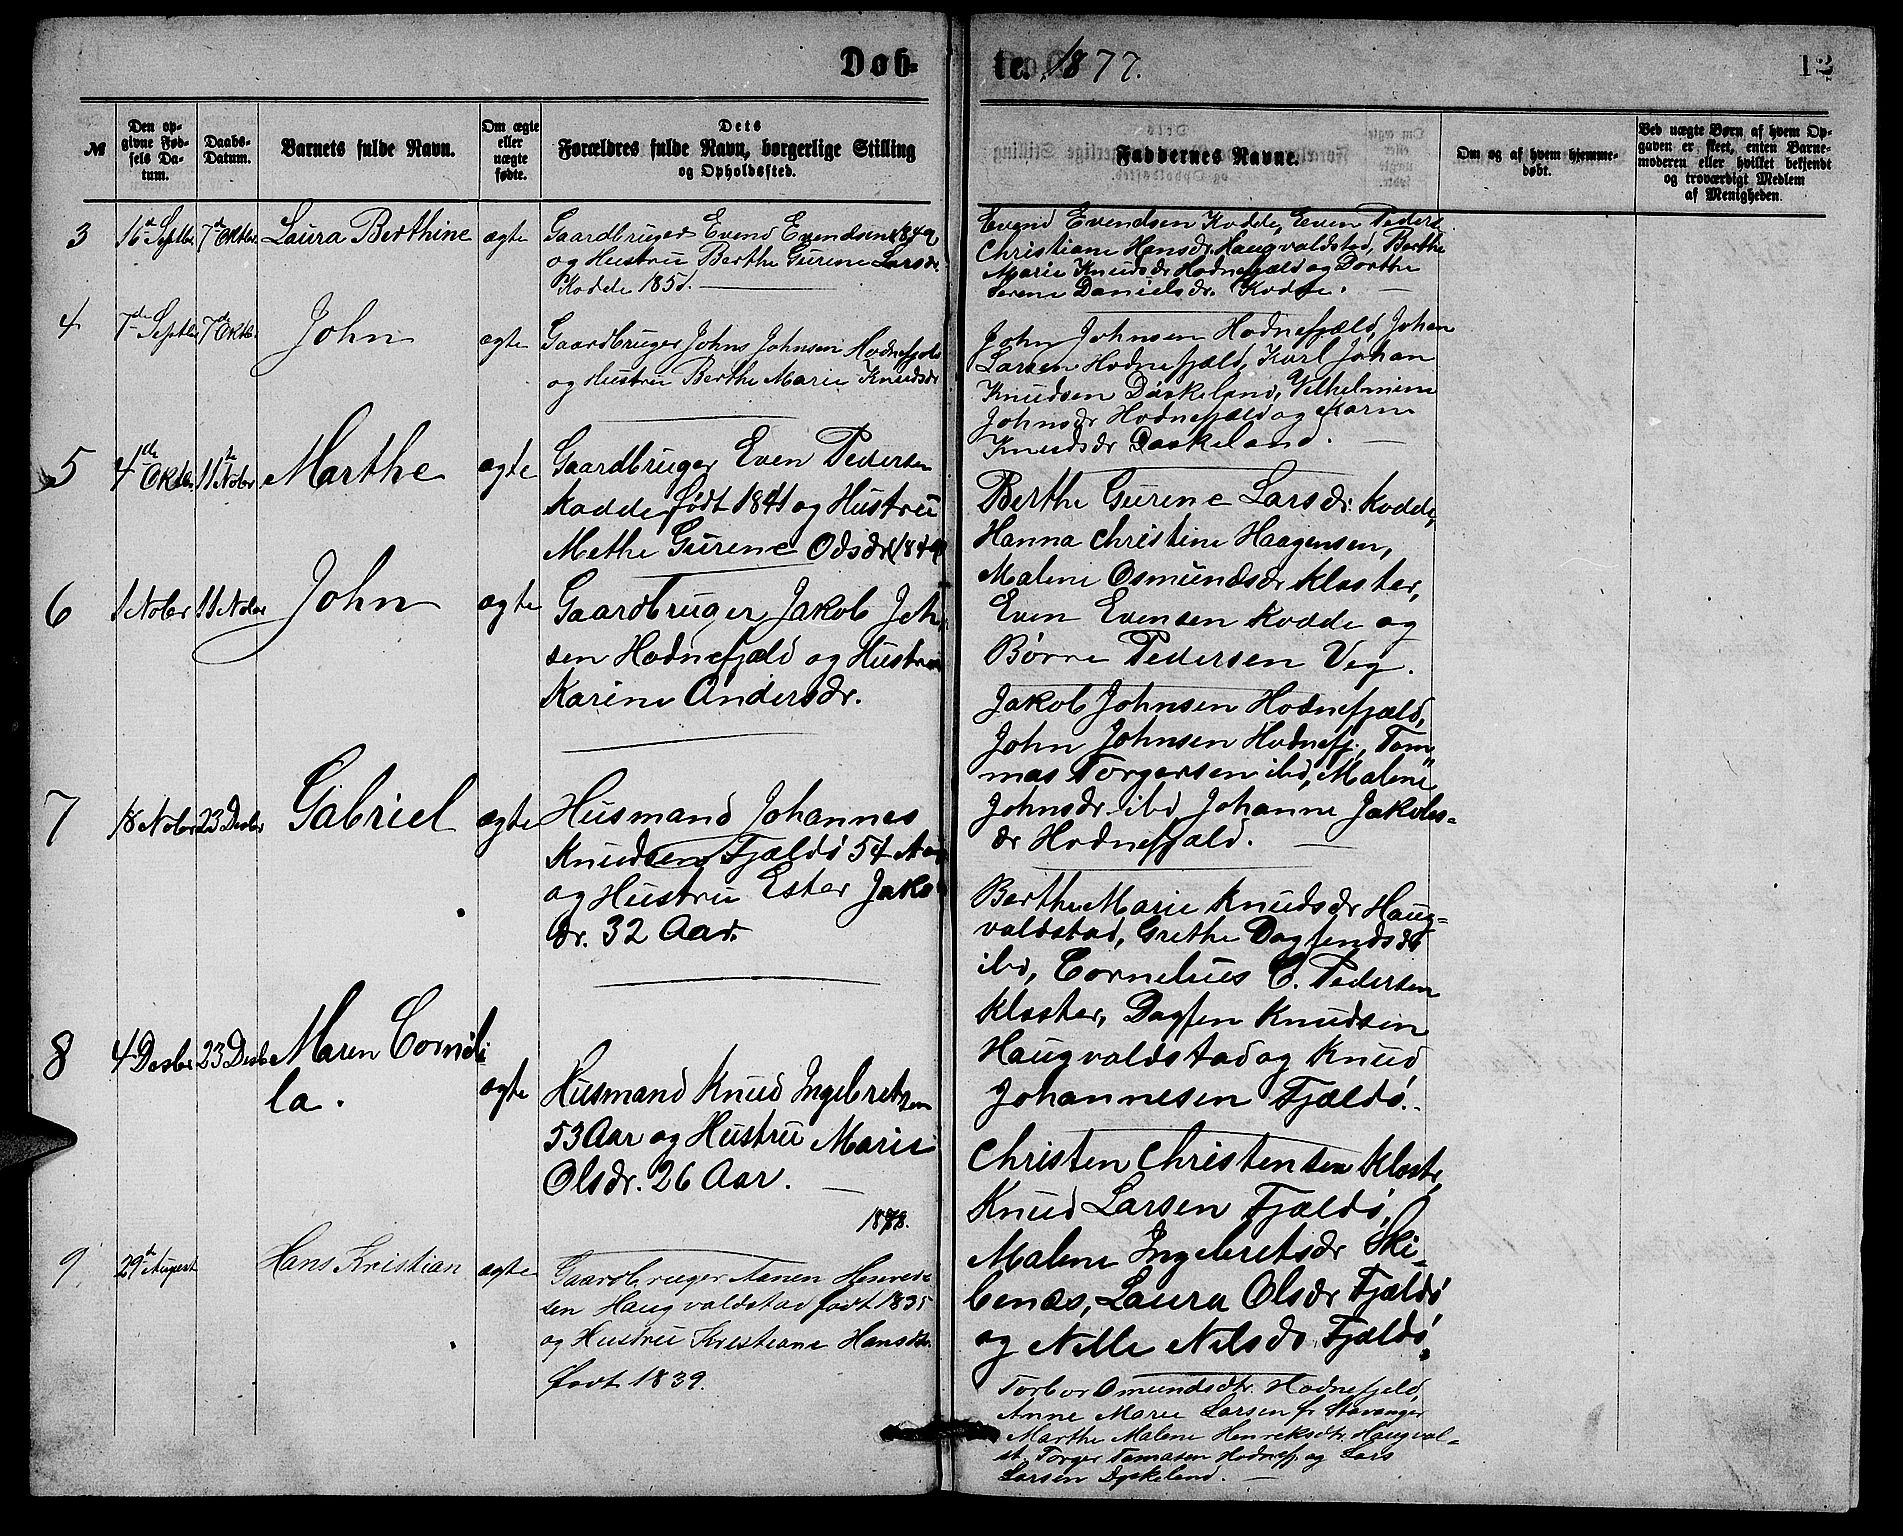 Døb-
te. 1877.
12
№
Den opgivne Fødsels Datum.
Daabs-Datum.
Barnets fulde Navn.
Om ægte eller uægte fødte.
Dets
Forældres fulde Navn, borgerlige Stilling
og Opholdssted.
Faddernes Navne.
Om og af hvem hjemmedøbt.
Ved uægte Børn af hvem Op-
gaven er skeet, enten Barne-
moderen eller hvilket bekjendt
og troværdigt Medlem
af Menigheden.
3
16de Septbr
7de Oktbr.
Laura Berthine
ægte
Gaardbruger Evend Evendsen 1849
og Hustru Berthe Gurene Larsdr
Kodde 1851.
Evend Evendsen Kodde, Even Peders
Christiane Hansdr. Haugvaldstad, Berthe
Marie Knudsdr Hodnefjæld og Dorthe
Serene Danielsdr. Kodde.
4
7de Septbr
7de Oktbr.
John
ægte
Gaardbruger Johns Johnsen Hodnefjeld
og Hustru Berthe Marie Knudsdr
John Johnsen Hodnefjæld, Johan
Larsen Hodnefjæld, Karl Johan
Knudsen Daskeland, Vilhelmine
Johnsdr Hodnefjæld og Karen
Knudsdr Daskeland.
5
4de Oktbr.
11te Nobr
Marthe
ægte
Gaardbruger Even Pedersen
Kodde født 1841 og Hustru
Methe Gurene Odsdr 1849
Berthe Gurene Larsdr. Kodde,
Hanna Christine Haagensen,
Malene Osmundsdr Kloster,
Even Evensen Kodde og
Børre Pedersen Veg.
6
1 Nobr
11 Nobr
John
ægte
Gaardbruger Jakob John
sen Hodnefjæld og Hustru
Karine Andersdr.
Jakob Johnsen Hodnefjæld,
John Johnsen Hodnefj., Tom
mas Torgersen ibd, Malene
Johnsdr ibd Johanne Jakobs-
dr Hodnefjæld.
7
18 Nobr
23 Desbr
Gabriel
ægte
Husmand Johannes
Knudsen Fjældø 54 Aar
og Hustru Ester Jako
dr. 32 Aar.
Berthe Marie Knudsdr Haug-
valdstad, Grethe Dagfendsdr
ibd, Cornelius C. Pedersen
Kloster, Dagfen Knudsen
Haugvaldstad og Knud
Johannesen Fjældø.
8
4 Desbr
23 Desbr
Maren Corneli
la.
ægte
Husmand Knud Ingebretsen
53 Aar og Hustru Marie
Olsdr. 26 Aar.
Christen Christensen Kloste,
Knud Larsen Fjældø,
Malene Ingebretsdr Ski-
benæs, Laura Olsdr Fjældø
og Nille Nilsdr Fjældø.
1878.
9.
29de August
Hans Kristian
ægte
Gaardbruger Aanen Henrek
sen Haugvaldstad født 1835
og Hustru Kristiane Hansdtr.
født 1839.
Torbor Omundsdtr. Hodnefjeld,
Anne Marie Larsen fr Stavanger
Marthe Malene Henreksdtr. Haugval-
st, Torger Tomasen Hodnefj. og Lars
Larsen Dyskeland.